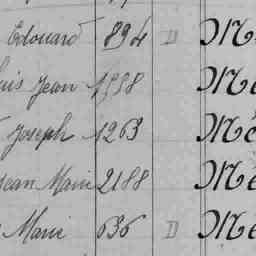 Edouard 894 D M
uis Jean 1558 Me
Joseph 1263 Mé
Jean Marie 2188 Me
Marie 636 D Me